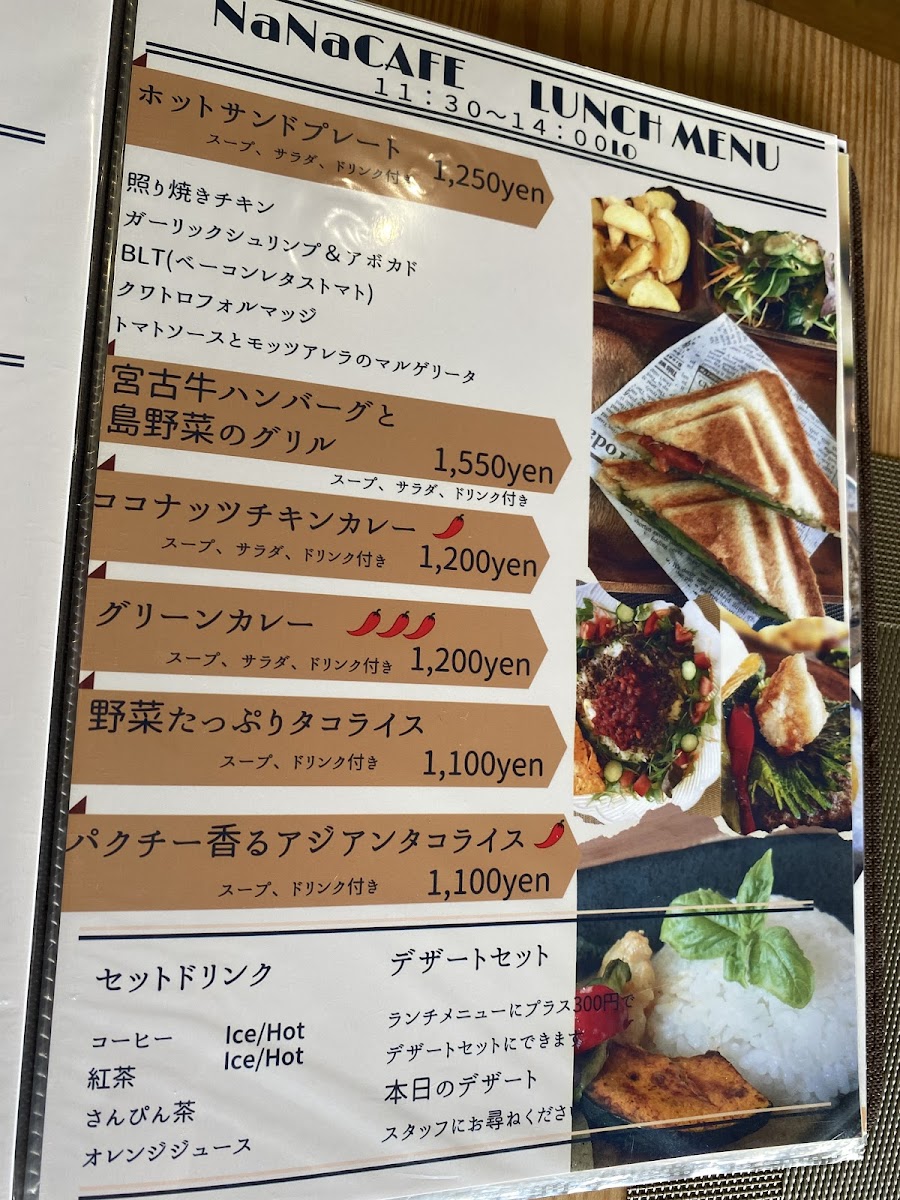 NaNaCAFE LUNCH MENU
11:30〜14:00LO
ホットサンドプレート
スープ、サラダ、ドリンク付き 1,250yen
照り焼きチキン
ガーリックシュリンプ&アボカド
BLT(ベーコンレタストマト)
クワトロフォルマッジ
トマトソースとモッツアレラのマルゲリータ
宮古牛ハンバーグと
島野菜のグリル
1,550yen
スープ、サラダ、ドリンク付き
ココナッツチキンカレー
スープ、サラダ、ドリンク付き 1,200yen
グリーンカレー
スープ、サラダ、ドリンク付き 1,200yen
野菜たっぷりタコライス
スープ、ドリンク付き 1,100yen
パクチー香るアジアンタコライス
スープ、ドリンク付き 1,100yen
セットドリンク
コーヒー Ice/Hot
紅茶 Ice/Hot
さんぴん茶
オレンジジュース
デザートセット
ランチメニューにプラス300円で
デザートセットにできます
本日のデザート
スタッフにお尋ねください